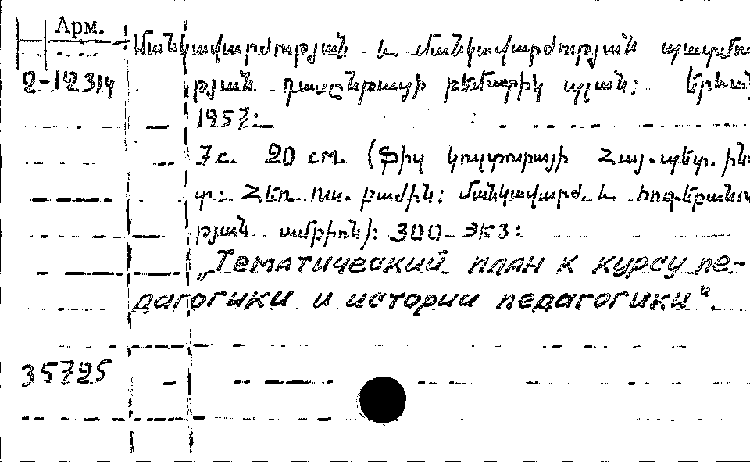 Арм.
Մանկավարժության և մանկավարժության պատմու
2-12314
թյան դասընթացի թեմատիկ պլան: Երևան
1957:
7 с. 20 см. (Ֆիզ կուլտուրայի Հայ. պետ. ին
տ. Հեռ. ուս. բաժին: Մանկավարժ. և հոգեբանու
թյան ամբիոն): 300 экз:
„Тематический план к курсу пе-
дагогики и истории педагогики".
35725